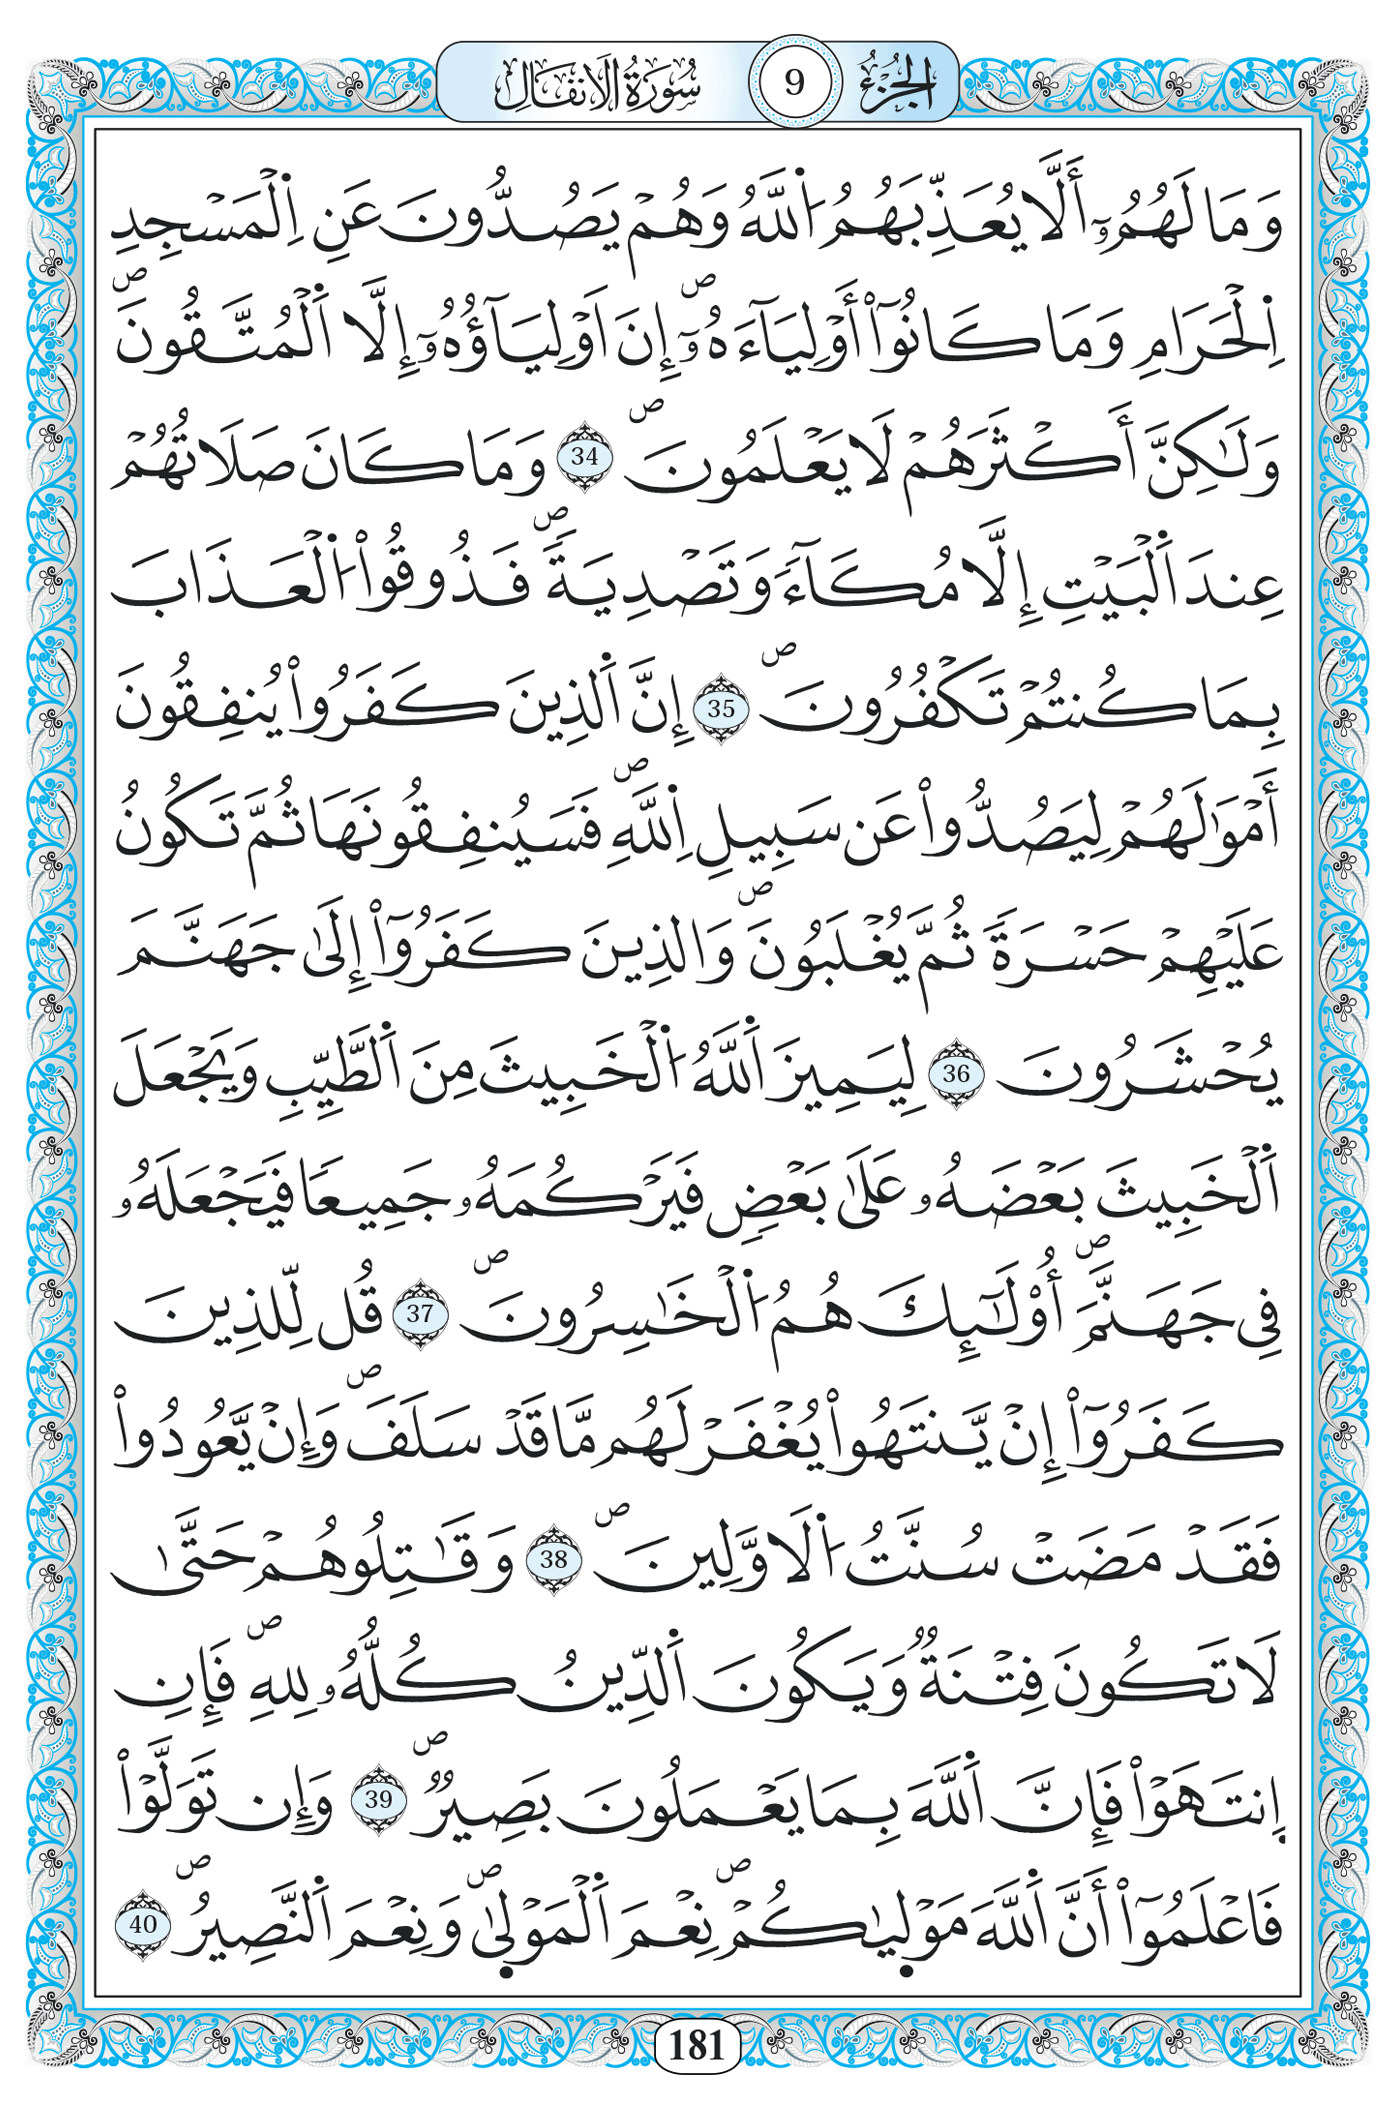 الجزء 9 سورة الانفال
وَمَا لَهُمُۥٓ أَلَّا يُعَذِّبَهُمُ اُ۬للَّهُ وَهُمْ يَصُدُّونَ عَنِ اِ۬لْمَسْجِدِ
اِ۬لْحَرَامِ وَمَا كَانُوٓاْ أَوْلِيَآءَهُۥٓۖ إِنَ اَوْلِيَآؤُهُۥٓ إِلَّا اَ۬لْمُتَّقُونَۖ
وَلَٰكِنَّ أَكْثَرَهُمْ لَا يَعْلَمُونَۖ 34 وَمَا كَانَ صَلَاتُهُمْ
عِندَ اَ۬لْبَيْتِ إِلَّا مُكَآءٗ وَتَصْدِيَةٗۖ فَذُوقُواْ اُ۬لْعَذَابَ
بِمَا كُنتُمْ تَكْفُرُونَۖ 35 إِنَّ اَ۬لذِينَ كَفَرُواْ يُنفِقُونَ
أَمْوَٰلَهُمْ لِيَصُدُّواْ عَن سَبِيلِ اِ۬للَّهِۖ فَسَيُنفِقُونَهَا ثُمَّ تَكُونُ
عَلَيْهِمْ حَسْرَةٗ ثُمَّ يُغْلَبُونَۖ وَالذِينَ كَفَرُوٓاْ إِلَىٰ جَهَنَّمَ
يُحْشَرُونَ 36 لِيَمِيزَ اَ۬للَّهُ اُ۬لْخَبِيثَ مِنَ اَ۬لطَّيِّبِ وَيَجْعَلَ
اَ۬لْخَبِيثَ بَعْضَهُۥ عَلَىٰ بَعْضٖ فَيَرْكُمَهُۥ جَمِيعاٗ فَيَجْعَلَهُۥ
فِي جَهَنَّمَۖ أُوْلَٰٓئِكَ هُمُ اُ۬لْخَٰسِرُونَۖ 37 قُل لِّلذِينَ
كَفَرُوٓاْ إِنْ يَّنتَهُواْ يُغْفَرْ لَهُم مَّا قَدْ سَلَفَۖ وَإِنْ يَّعُودُواْ
فَقَدْ مَضَتْ سُنَّتُ اُ۬لَاوَّلِينَۖ 38 وَقَٰتِلُوهُمْ حَتَّىٰ
لَا تَكُونَ فِتْنَةٞ وَيَكُونَ اَ۬لدِّينُ كُلُّهُۥ لِلهِۖ فَإِنِ
اِ۪نتَهَوْاْ فَإِنَّ اَ۬للَّهَ بِمَا يَعْمَلُونَ بَصِيرٞۖ 39 وَإِن تَوَلَّوْاْ
فَاعْلَمُوٓاْ أَنَّ اَ۬للَّهَ مَوْل۪يٰكُمْۖ نِعْمَ اَ۬لْمَوْل۪يٰۖ وَنِعْمَ اَ۬لنَّصِيرُۖ 40
181